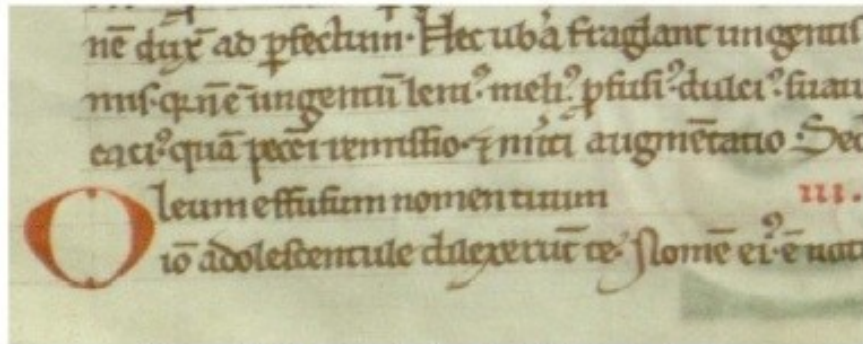 nē dux̄ ad ꝑfectum. Hec ub̄a fraglant ungentis
mis. qꝛ nē ungentū leni᷒. meli᷒ ꝑfusi᷒. dulci᷒. suau
caci᷒. quā pecc̄i remissio. ⁊ m̄iti augmētatio. Sed
Oleum effusum nomen tuum III.
iō adolescentule dilexerūt te. Nomē ei᷒. ē not